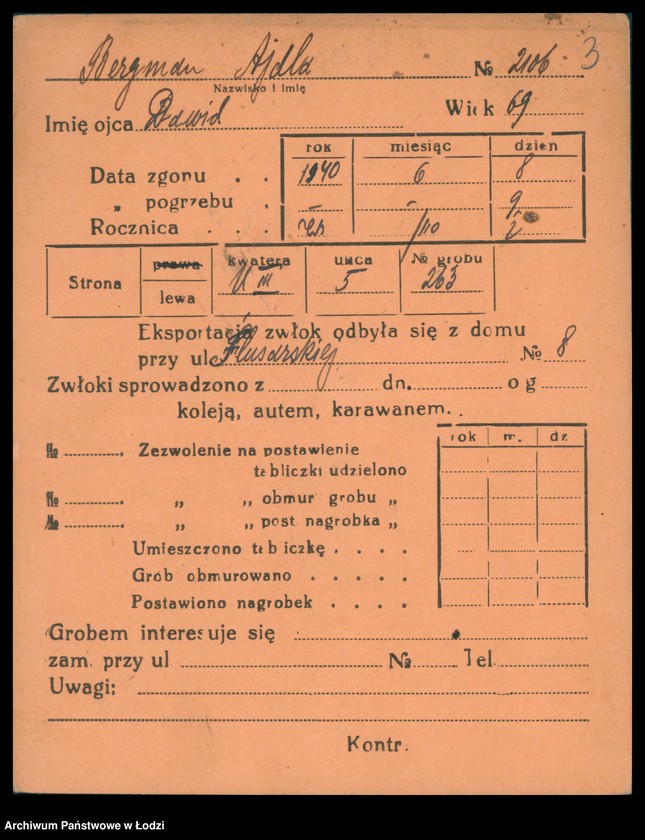 Bergman Ajdla № 2106 3
Nazwisko i imię
Imię ojca Dawid Wiek 69
rok miesiąc dzień
Data zgonu . . 1940 6 8
„ pogrzebu . – – 9
Rocznica . . . /10 2
Strona prawa lewa kwatera U III ulica 5 № grobu 263
Eksportacja zwłok odbyła się z domu
przy ul. Flusarskiej № 8
Zwłoki sprowadzono z dn. o g
koleją, autem, karawanem. .
rok m. dz
№ Zezwolenie na postawienie
tabliczki udzielono
№ „ „ obmur grobu „
№ „ „ post nagrobka „
Umieszczono tabliczkę . . . .
Grób obmurowano . . . . .
Postawiono nagrobek . . . .
Grobem interesuje się
zam. przy ul № Tel.
Uwagi:
Kontr.
Archiwum Państwowe w Łodzi